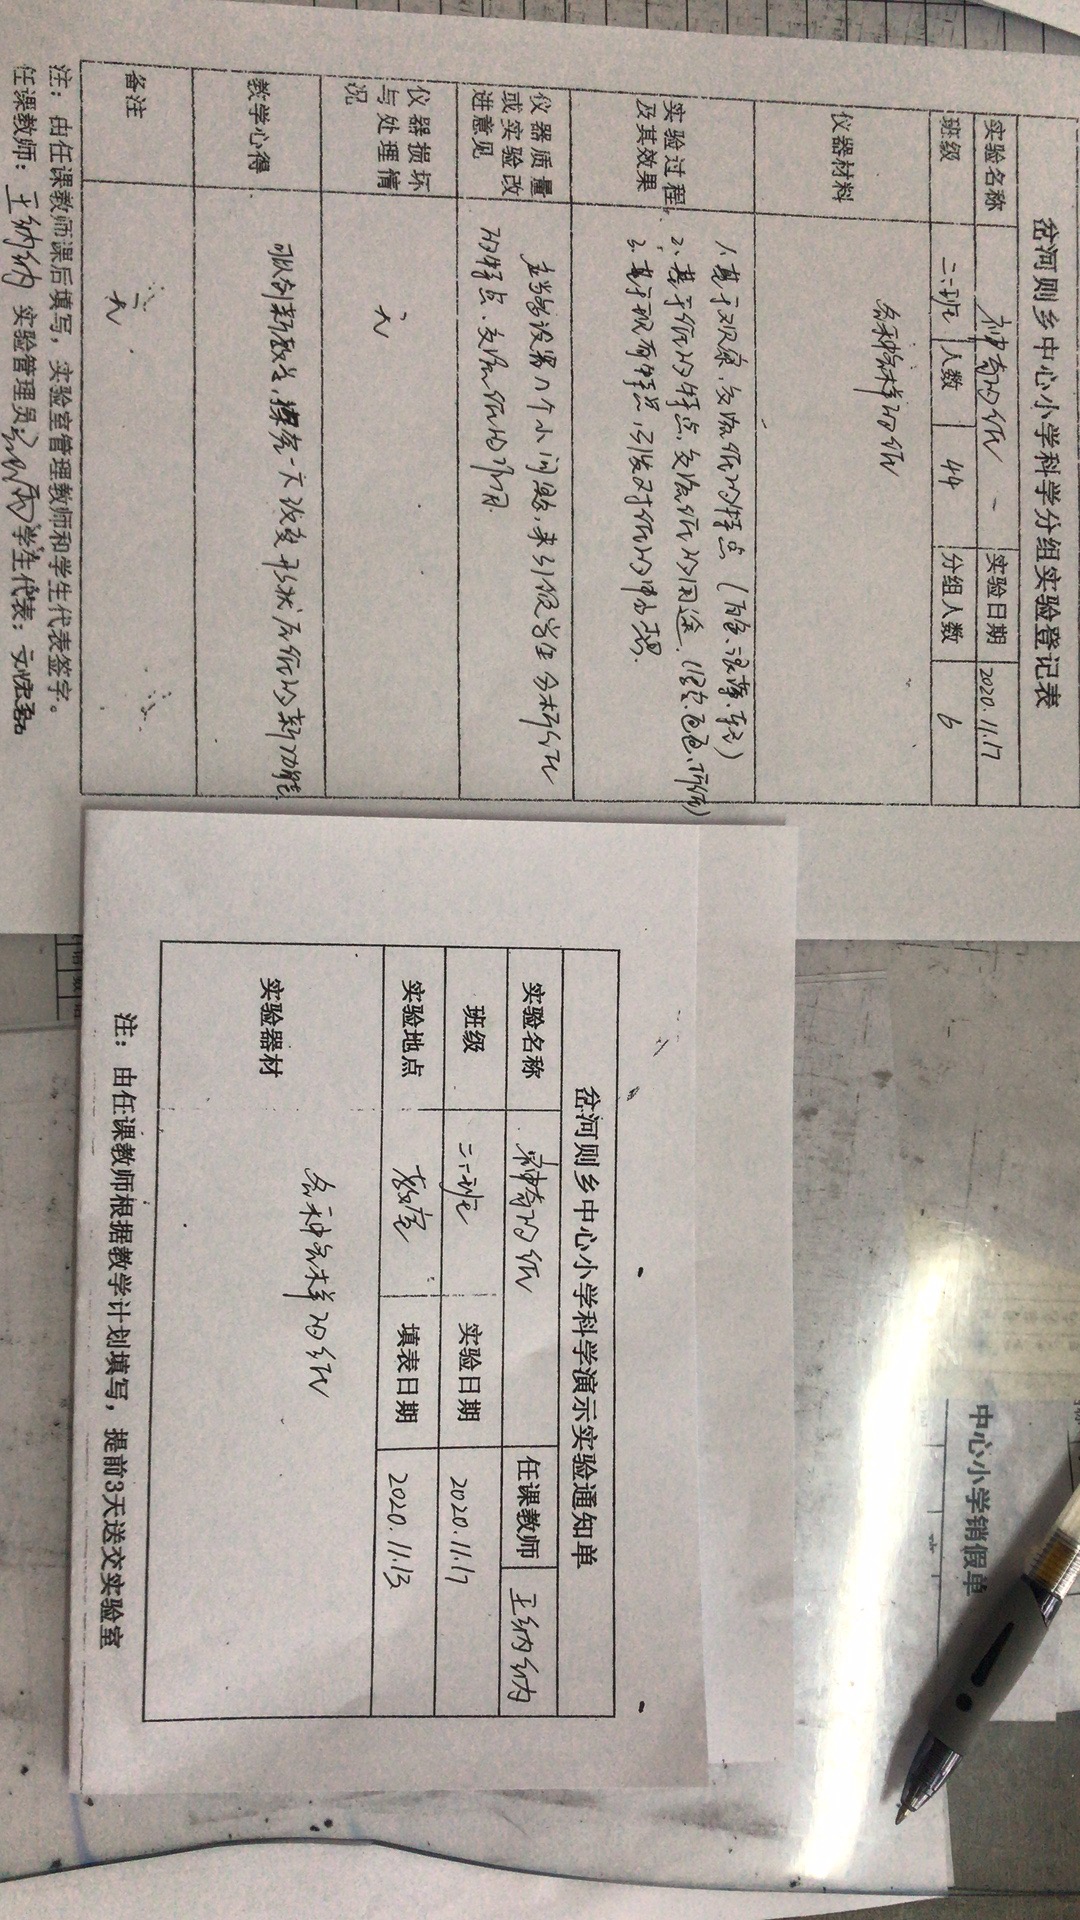 岔河则乡中心小学科学分组实验登记表
实验名称 神奇的纸 实验日期 2020.11.17
班级 二.一班 人数 44 分组人数 6
仪器材料 各种各样的纸
实验过程及其效果
1、基于观察,交流纸的特点(
2、基于纸的特点,交流纸的用途.
3、基于现有特点,引发对纸的
仪器质量或实验改进意见
应当多设置几个小问题,来引领学生分析纸
的特点.交流纸的作用
仪器损坏与处理情况 无
教学心得 可以创新教学,探索一次改变形状后纸的新功能
备注 无
注:由任课教师课后填写,实验室管理教师和学生代表签字。
任课教师:王纳纳 实验管理员: 学生代表:
岔河则乡中心小学科学演示实验通知单
实验名称 神奇的纸 任课教师 王纳纳
班级 二.一班 实验日期 2020.11.17
实验地点 教室 填表日期 2020.11.13
实验器材 各种各样的纸
注:由任课教师根据教学计划填写,提前3天送交实验室
中心小学销假单